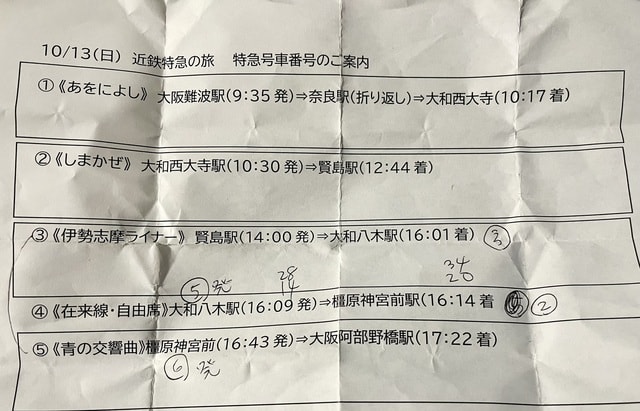 10/13(日) 近鉄特急の旅 特急号車番号のご案内
①《あをによし》 大阪難波駅(9:35 発)⇒奈良駅(折り返し)⇒大和西大寺(10:17 着)
②《しまかぜ》 大和西大寺駅(10:30 発)⇒賢島駅(12:44 着)
③《伊勢志摩ライナー》 賢島駅(14:00 発)⇒大和八木駅(16:01 着) ③
⑤発 28 34
14 20
④《在来線・自由席》大和八木駅(16:09 発)⇒橿原神宮前駅(16:14 着 ②
⑤《青の交響曲》橿原神宮前(16:43 発)⇒大阪阿部野橋駅(17:22 着)
⑥発